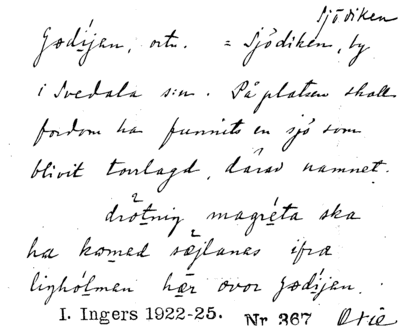 Sjödiken
Gœdíjan, ortn. = Sjödiken, by
i Svedala s:n. På platsen skall
fordom ha funnits en sjö som
blivit torrlagd, därav namnet.
drǫtniŋ magréta ska
ha kœmed sœjlanes ifra
liŋhólman hœr ovor Gœdíjan.
I. Ingers 1922-25. Nr 367 Oxie